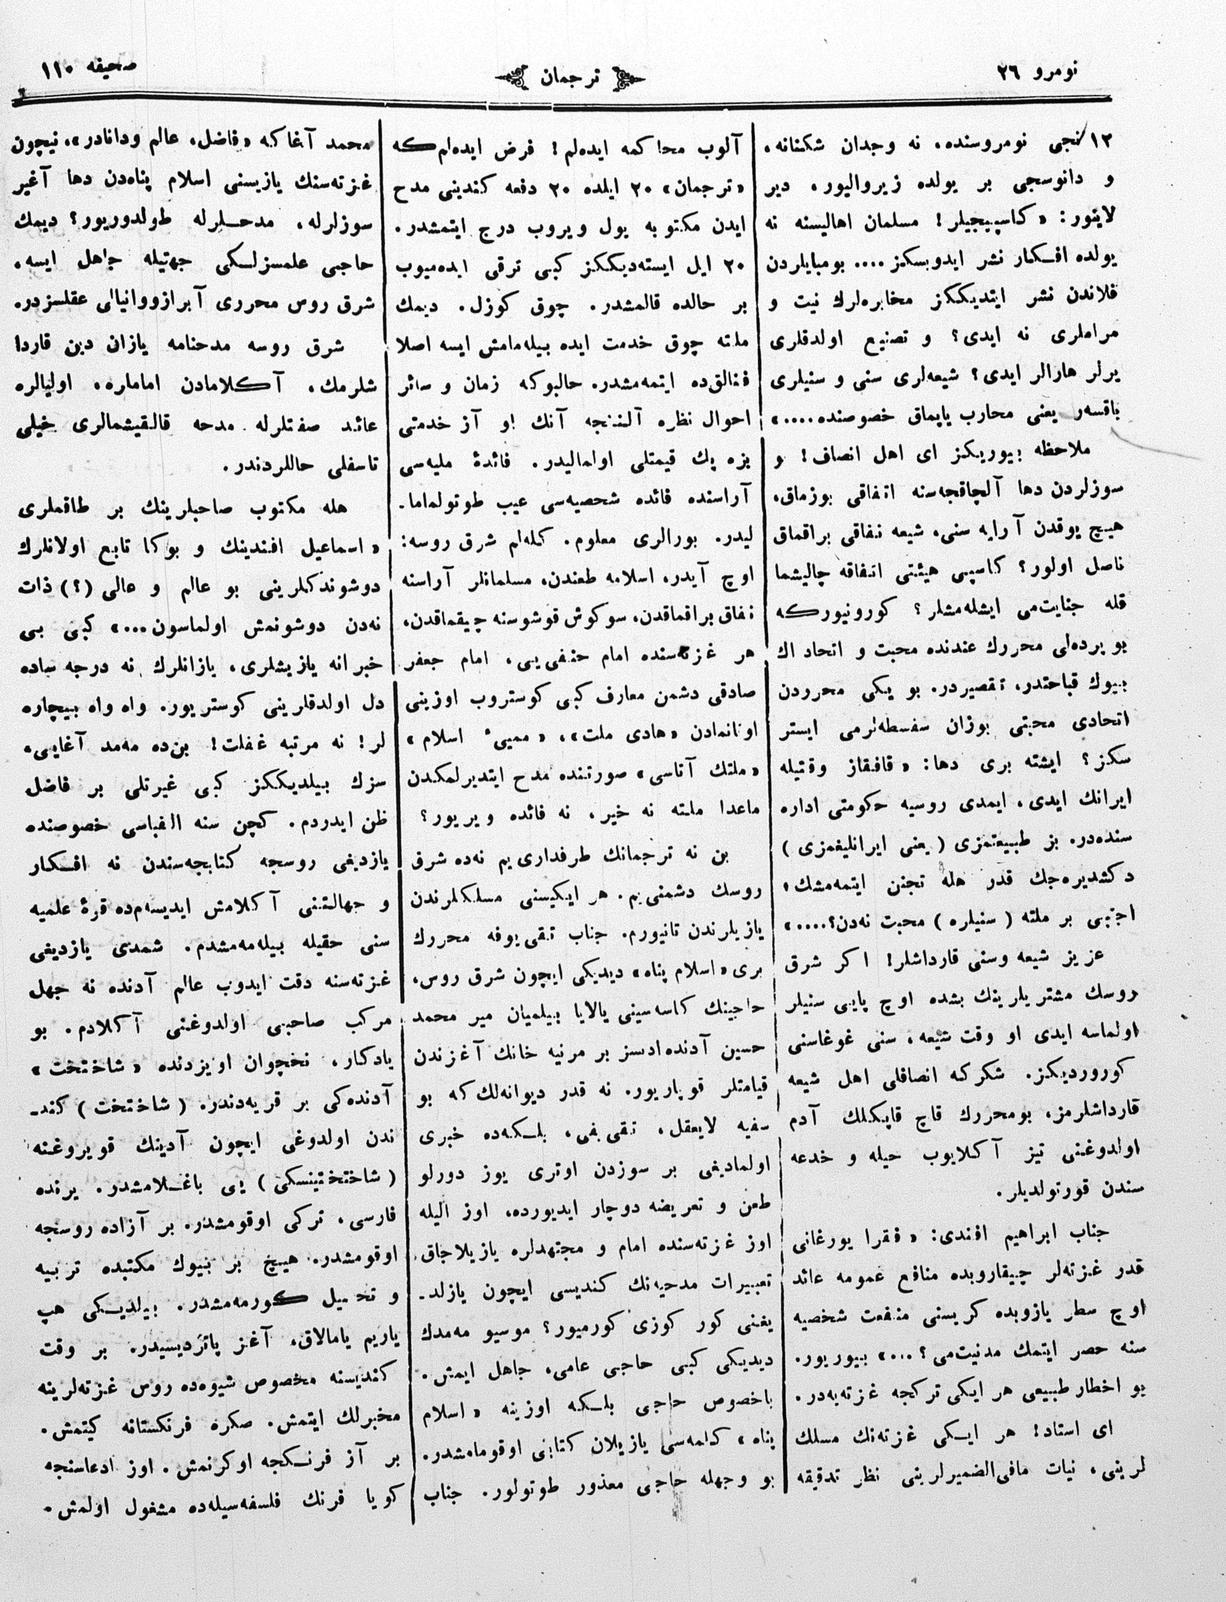 نومرو ٢٦
ترجمان
صحیفه ١١٠
١٢ نجی نومروسنده، نه وجدان شکنانه،
و دانوسجی بر یولده زیروالیور. دیر
لایتور: «کاسپیجیلر! مسلمان اهالیسنه نه
یولده افکار نشر ایدوبسکز .... بومبایلردن
فلاندن نشر ایتدیککز مخابره‌لرك نیت و
مراملری نه ایدی؟ و تصنیع اولدقلری
یرلر هارالر ایدی؟ شیعه‌لری سنی و سنیلری
باقسه‌ر یعنی محارب یایماق خصوصنده....»
ملاحظه بیوریکز ای اهل انصاف! و
سوزلردن دها آلچاقجه‌سنه اتفاقی بوزماق،
هیچ یوقدن آرایه سنی، شیعه نفاقی براقماق
ناصل اولور؟ کاسپی هیئتی اتفاقه چالیشما
قله جنایت‌می ایشله‌مشلر؟ کورونیورکه
بو پرده‌لی محررك عندنده محبت و اتحاد اك
بیوك قباحتدر، تقصیردر. بو یکی محرردن
اتحادی محبتی بوزان سفسطه‌لرمی ایستر
سکز؟ ایشته بری دها: «قافقاز وقتیله
ایرانك ایدی، ایمدی روسیه حکومتی اداره
سنده‌در. بز طبیعتمزی (یعنی ایرانلیغمزی)
دکشدیره‌جك قدر هله تجنن ایتمه‌مشك؛
اجنبی بر ملته (سنیلره) محبت نه‌دن؟....»
عزیز شیعه وسنی قارداشلر! اکر شرق
روسك مشتریلرینك بشده اوچ پایی سنیلر
اولماسه ایدی او وقت شیعه، سنی غوغاسنی
کوروردیکز. شکرکه انصافلی اهل شیعه
قارداشلرمز، بومحررك قاچ قاپیکلك آدم
اولدوغنی تیز آکلایوب حیله و خدعه
سندن قورتولدیلر.
جناب ابراهیم افندی: «فقرا یورغانی
قدر غزته‌لر چیقاروبده منافع عمومه عائد
اوچ سطر یازوبده کریسنی منفعت شخصیه
سنه حصر ایتمك مدنیت‌می؟...» بیوریور.
بو اخطار طبیعی هر ایکی ترکجه غزته‌یه‌در.
ای استاد! هر ایکی غزته‌نك مسلك
لرینی، نیات مافی‌الضمیرلرینی نظر تدقیقه
آلوب محاکمه ایده‌لم! فرض ایده‌لم‌که
«ترجمان» ٢٠ ایلده ٢٠ دفعه کندینی مدح
ایدن مکتوبه یول ویروب درج ایتمشدر.
٢٠ ایل ایسته‌دیککز کبی ترقی ایده‌میوب
بر حالده قالمشدر. چوق کوزل. دیمك
ملته چوق خدمت ایده بیله‌مامش ایسه اصلا
فنالق‌ده ایتمه‌مشدر. حالبوکه زمان و سائر
احوال نظره آلننجه آنك او آز خدمتی
بزه پك قیمتلی اولمالیدر. فائدهٔ ملیه‌سی
آراسنده فائده شخصیه‌سی عیب طوتولماما.
لیدر. بورالری معلوم. کله‌لم شرق روسه:
اوچ آیدر، اسلامه طعندن، مسلمانلر آراسنه
نفاق براقماقدن، سوکوش قوشوسنه چیقماقدن،
هر غزته‌سنده امام حنفی‌یی، امام جعفر
صادقی دشمن معارف کبی کوستروب اوزینی
اوتانمادن «هادی ملت»، «ممییء اسلام»
«ملتك آتاسی» صورتنده مدح ایتدیرلمکدن
ماعدا ملته نه خیر، نه فائده ویریور؟
بن نه ترجمانك طرفداری‌یم نه‌ده شرق
روسك دشمنی‌یم. هر ایکیسنی مسلکلرندن
یازیلرندن تانیورم. جناب تقی‌یوفه محررك
بری «اسلام پناه» دیدیکی ایچون شرق روس،
حاجینك کاسه‌سینی یالایا بیلمیان میر محمد
حسین آدنده‌ادسز بر مرثیه خانك آغزندن
قیامتلر قوپاریور. نه قدر دیوانه‌لك‌که بو
سفیه لایعقل، تقی‌یفی، بلکه‌ده خبری
اولمادیغی بر سوزدن اوتری یوز دورلو
طعن و تعریضه دوچار ایدیورده، اوز الیله
اوز غزته‌سنده امام و مجتهدلره یازیلاجاق
تعبیرات مدحیه‌نك کندیسی ایچون یازلد۔
یغنی کور کوزی کورمیور؟ موسیو مه‌مدك
دیدیکی کبی حاجی عامی، جاهل ایمش.
باخصوص حاجی بلکه اوزینه «اسلام
پناه» کلمه‌سی یازیلان کتابی اوقومامشدر.
بو وجهله حاجی معذور طوتولور. جناب
محمد آغا که «فاضل، عالم ودانادر»، نیچون
غزته‌سنك یازیسنی اسلام پناه‌دن دها آغیر
سوزلرله، مدحلرله طولدوریور؟ دیمك
حاجی علمسزلکی جهتیله جاهل ایسه،
شرق روس محرری آبرازووانیالی عقلسزدر.
شرق روسه مدحنامه یازان دین قاردا
شلرمك، آکلامادن اماماره، اولیالره
عائد صفتلرله مدحه قالقیشمالری خیلی
تاسفلی حاللردندر.
هله مکتوب صاحبلرینك بر طاقملری
«اسماعیل افندینك و بوکا تابع اولانلرك
دوشوندکلرینی بو عالم و عالی (؟) ذات
نه‌دن دوشونمش اولماسون...» کبی بی
خبرانه یازیشلری، یازانلرك نه درجه ساده
دل اولدقلرینی کوستریور. واه واه بیچاره
لر! نه مرتبه غفلت! بن‌ده مه‌مد آغایی،
سزك بیلدیککز کبی غیرتلی بر فاضل
ظن ایدردم. کچن سنه الفباسی خصوصنده
یازدیغی روسجه کتابجه‌سندن نه افکار
و جهالتنی آکلامش ایدیسه‌م‌ده قرهٔ علمیه
سنی حقیله بیله‌مه‌مشدم. شمدی یازدیغی
غزته‌سنه دقت ایدوب عالم آدنده نه جهل
مرکب صاحبی اولدوغنی آکلادم. بو
یادکار، نخچوان اویزدنده «شاختخت»
آدنده‌کی بر قریه‌دندر. (شاختخت) کند۔
ندن اولدوغی ایچون آدینك قویروغنه
(شاختختینسکی) یی باغلامشدر. یرنده
فارسی، ترکی اوقومشدر. بر آزاده روسجه
اوقومشدر. هیچ بر بیوك مکتبده تربیه
و تحصیل کورمه‌مشدر. بیلدیکی هپ
یاریم یامالاق، آغز پائردیسیدر. بر وقت
کندیسنه مخصوص شیوه‌ده روس غزته‌لرینه
مخبرلك ایتمش. صکره فرنکستانه کیتمش.
بر آز فرنکجه اوکرنمش. اوز ادعاسنجه
کویا فرنك فلسفه‌سیله‌ده مشغول اولمش.